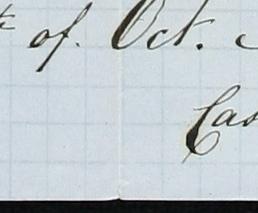 of. Oct.
Cas